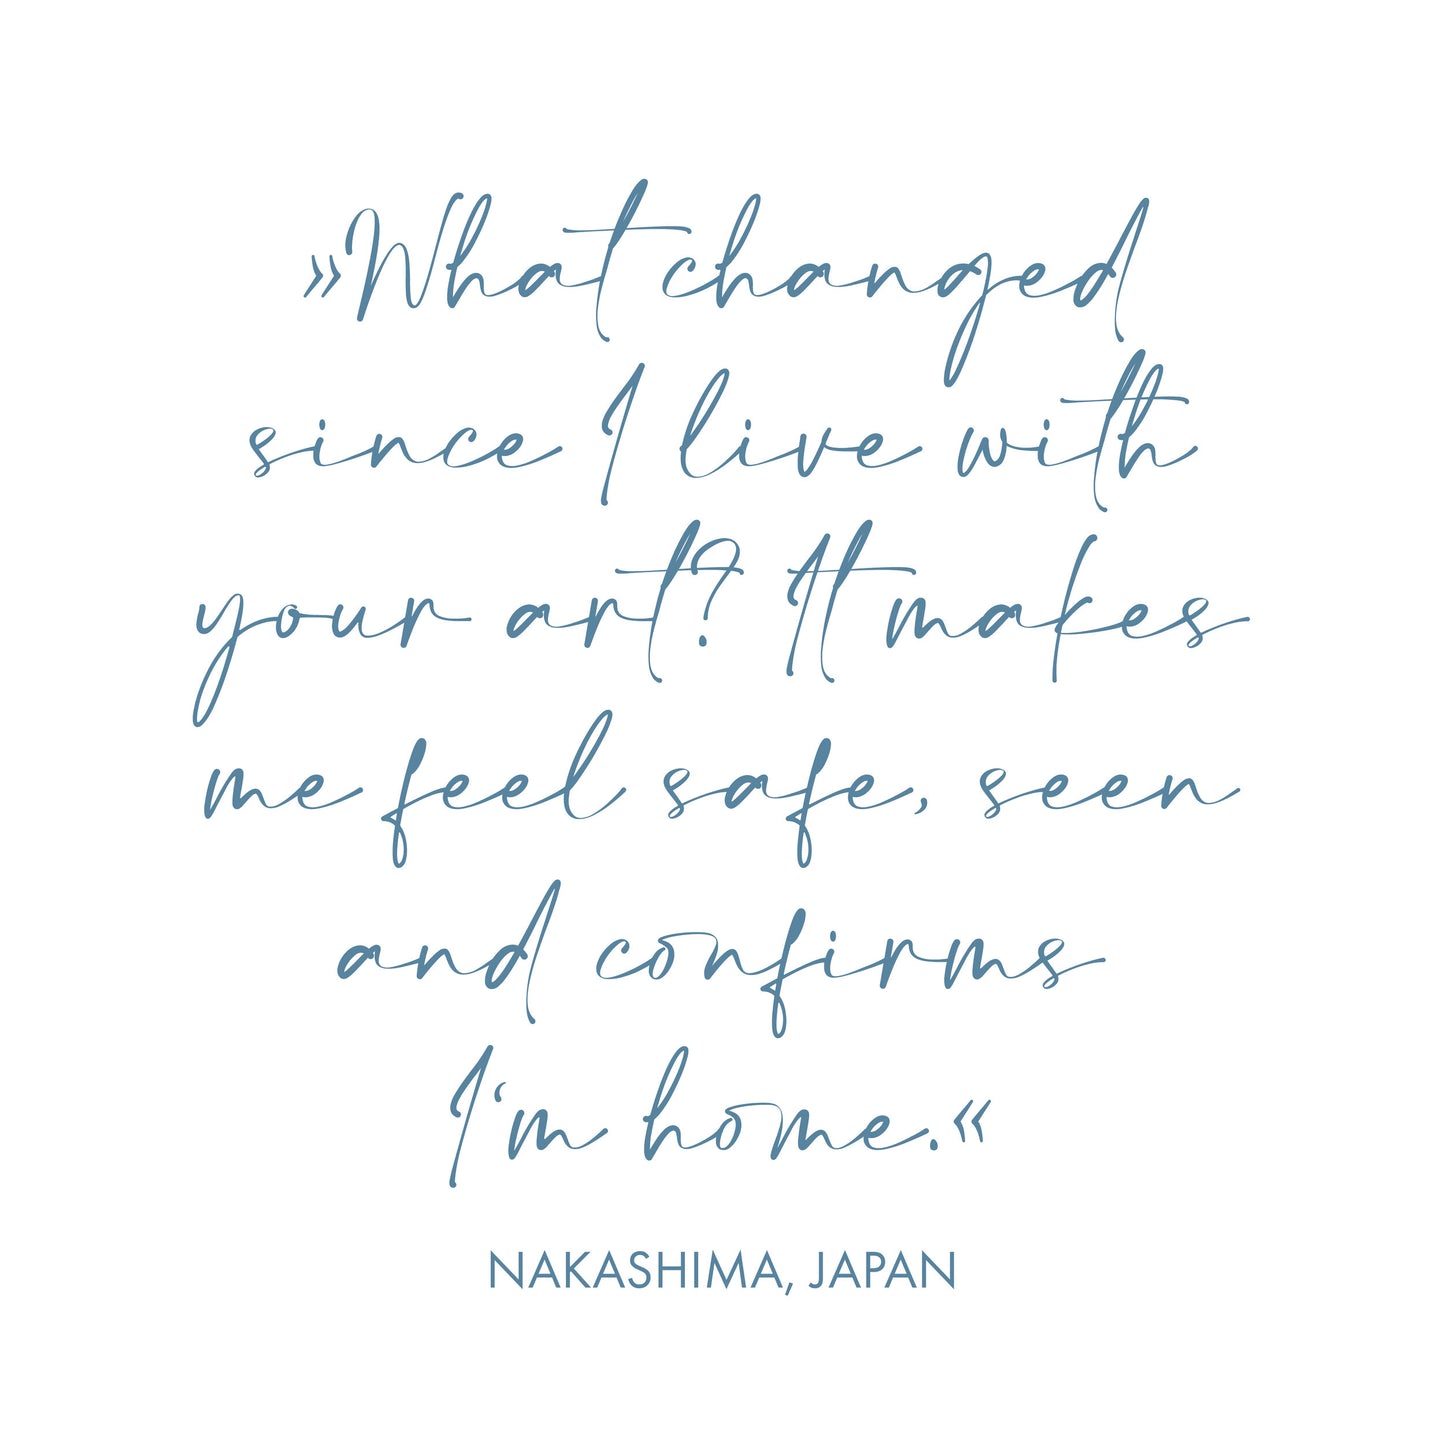 »What changed
since I live with
your art? It makes
me feel safe, seen
and confirms
I‘m home.«
NAKASHIMA, JAPAN